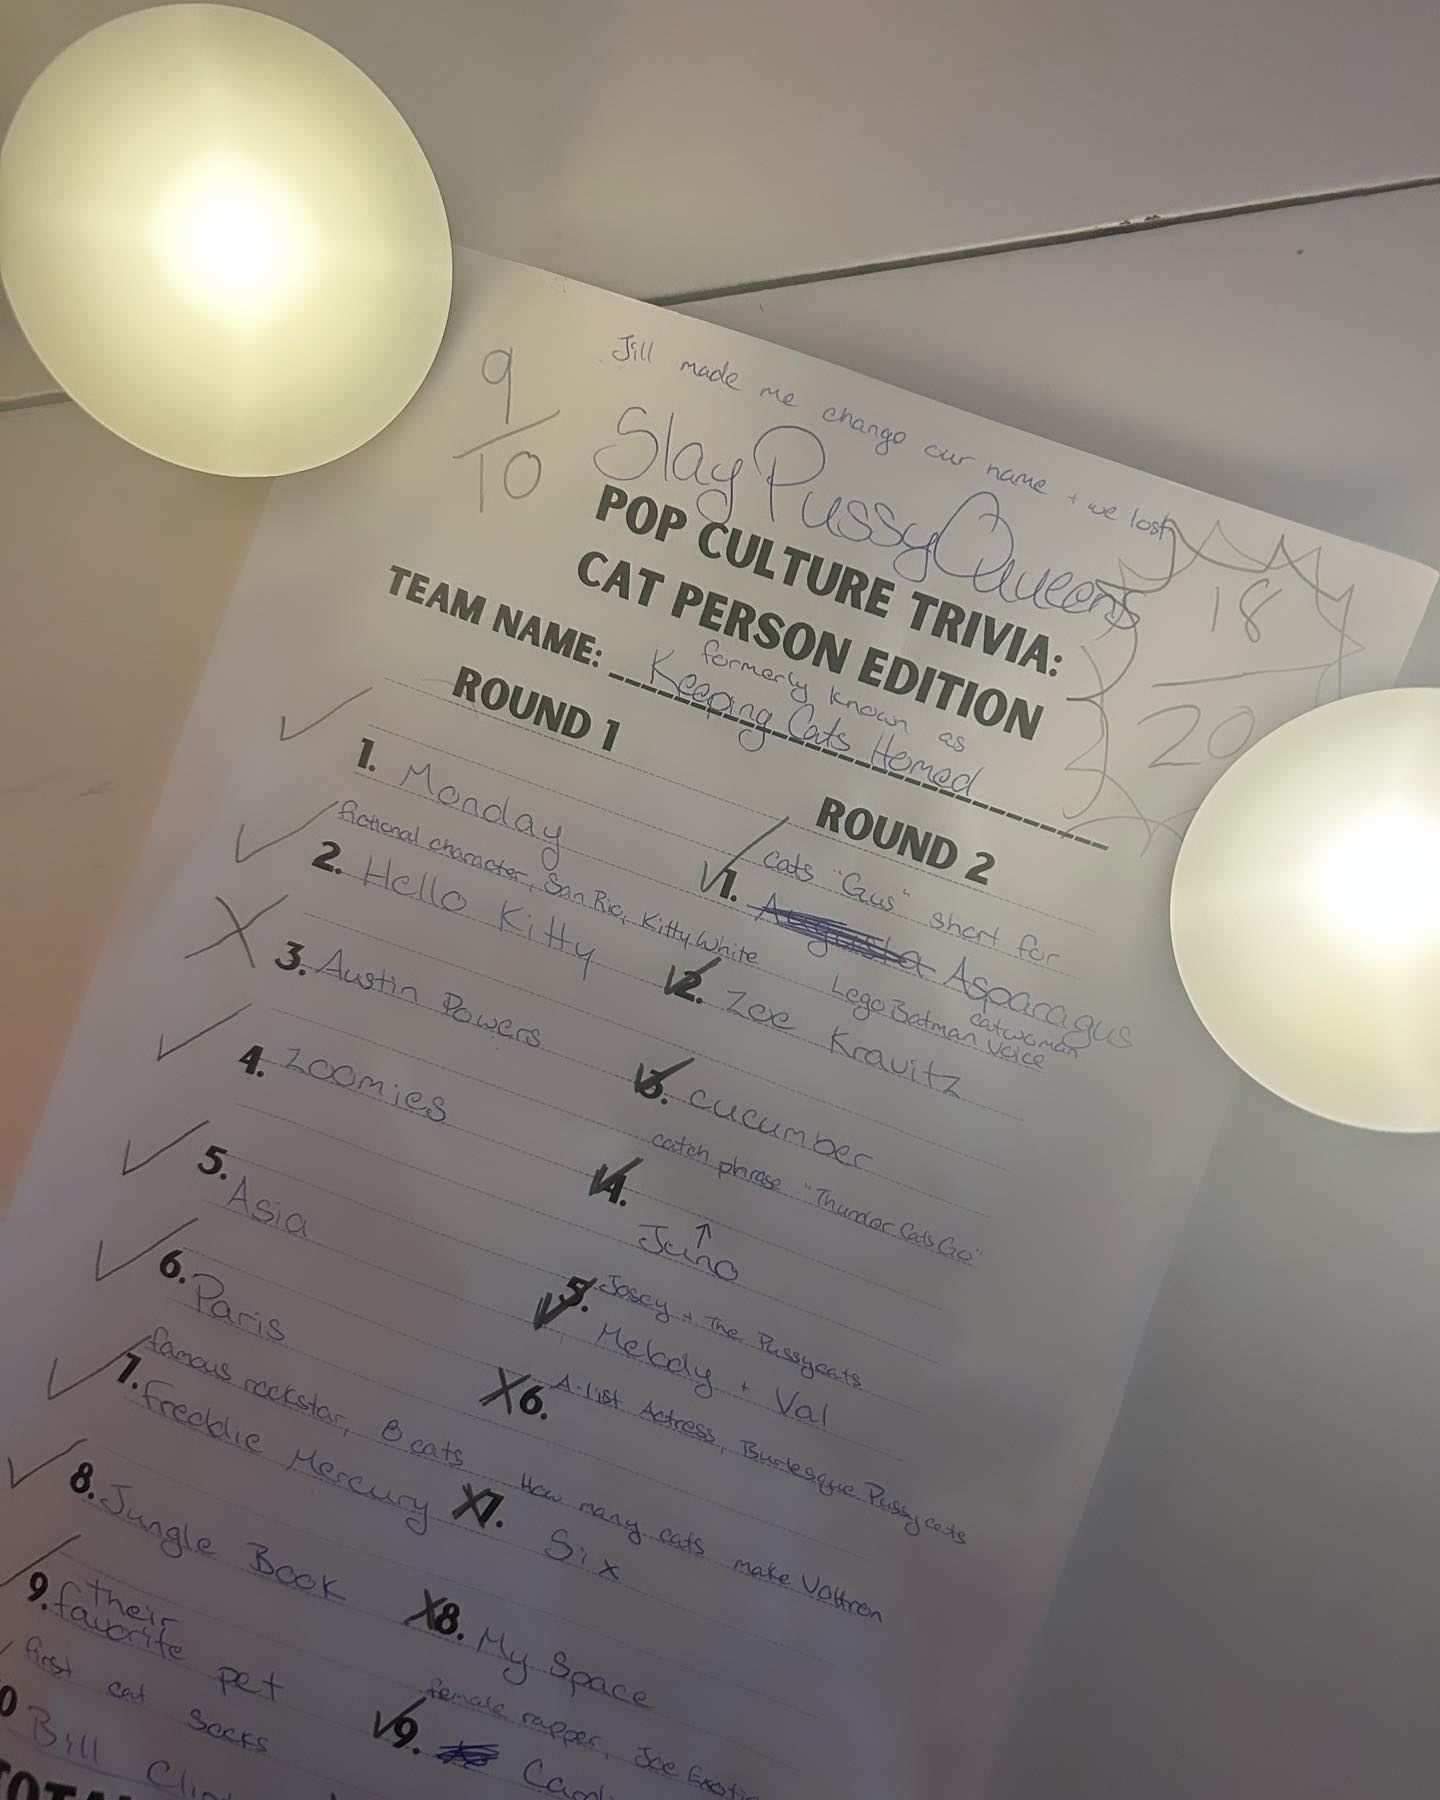 Jill made me change our name + we lost
9/10
SlayPussyQueens
POP CULTURE TRIVIA:
CAT PERSON EDITION
18/20
TEAM NAME: formerly known as
Keeping Cats Homed
ROUND 1
1. Monday
fictional character, San Rio, Kitty White
2. Hello Kitty
3. Austin Powers
4. Zoomies
5. Asia
6. Paris
famous rockstar, 8 cats
7. Freddie Mercury
8. Jungle Book
9. their
favorite pet
first cat Socks
Bill
ROUND 2
cats "Gus" short for
1. Augusta Asparagus
Lego Batman catwoman
voice
2. Zoe Kravitz
3. cucumber
catch phrase "Thunder Cats Go"
4. ↑
Juno
Josey + The Pussycats
5. Melody + Val
6. A-list Actress, Burlesque Pussycats
How many cats make Voltron
7. Six
8. My Space
female rapper, Joe
9.